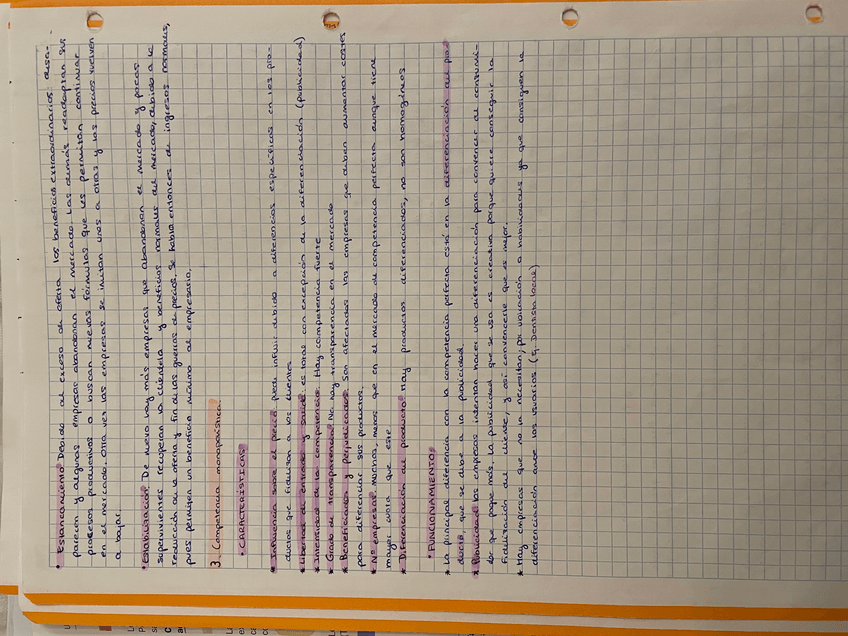 • Estancamiento Debido al exceso de oferta los beneficios extraordinarios desa-
parecen y algunas empresas abandonan el mercado. Las demás readaptan sus
procesos productivos o buscan nuevas fórmulas que les permitan continuar
en el mercado. Otra vez las empresas se imitan unas a otras y los precios vuelven
a bajar.
• Estabilización De nuevo hay más empresas que abandonan el mercado y pocas
supervivientes recuperan la clientela y beneficios normales del mercado, debido a la
reducción de la oferta y fin de las guerras de precios. Se habla entonces de ingresos normales,
pues permiten un beneficio mínimo al empresario.
3. Competencia monopolística.
• CARACTERÍSTICAS
* Influencia sobre el precio pueden influir debido a diferencias específicas en los pro-
ductos que fidelizan a los clientes
* Libertad de entrada y salida: es total con excepción de la diferenciación (publicidad)
* Intensidad de la competencia: Hay competencia fuerte
* Grado de transparencia No hay transparencia en el mercado
* Beneficiados y perjudicados. Son afectadas las empresas que deben aumentar costes
para diferenciar sus productos.
* Nº empresas Muchas, menos que en el mercado de competencia perfecta aunque tiene
mayor que este
* Diferenciación del producto Hay productos diferenciados, no son homogéneos
• FUNCIONAMIENTO
* La principal diferencia con la competencia perfecta está en la diferenciación del pro-
ducto, que se debe a la publicidad.
* Publicidad las empresas intentan hacer una diferenciación para convencer al consumi-
dor que pague más. La publicidad que se usa es creativa porque quiere conseguir la
fidelización del cliente, y así convencerle que es mejor.
* Hay empresas que no la necesitan, por vocación o habilidades ya que consiguen la
diferenciación ante los usuarios (ej. Dentista local)